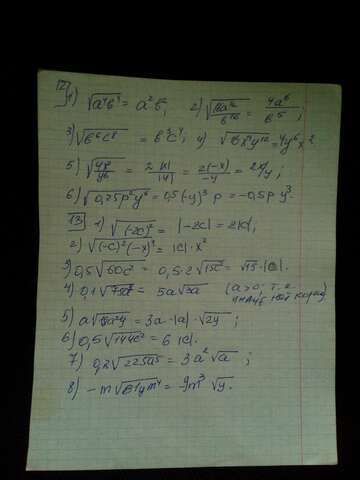 12) 1) √(a⁴b⁴) = a²b²; 2) √(16a¹²/b¹⁰) = 4a⁶/b⁵;
3) √(b⁶c⁸) = b³c⁴; 4) √(16x⁴y¹²) = 4y⁶x²
5) √(4x²/y²) = 2|x|/|y| = 2(-x)/-y = 2x/y;
6) √(0,25p²y⁶) = 0,5(-y)³p = -0,5py³.
13. 1) √(-2c)² = |-2c| = 2|c|;
2) √((-c)²(-x)⁴) = |c|·x²
3) 0,5√(60c²) = 0,5·2√(15c²) = √15·|c|.
4) 0,1√(75a³) = 5a√(3a) (a>0, т.к.
иначе нет корня)
5) a√(18a²y) = 3a·|a|·√(2y);
6) 0,5√(144c²) = 6|c|.
7) 0,2√(225a⁵) = 3a²√a;
8) -m√(81ym⁴) = 9m³√y.